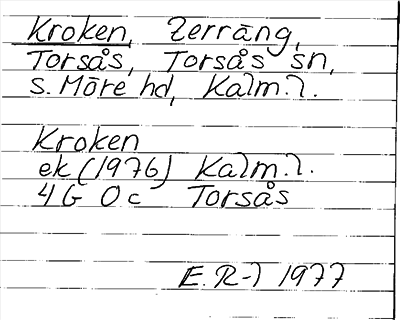 Kroken, Terräng,
Torsås, Torsås sn,
S. Möre hd, Kalm. l.
Kroken
ek (1976) Kalm. l.
4G 0c Torsås
E. R-l 1977